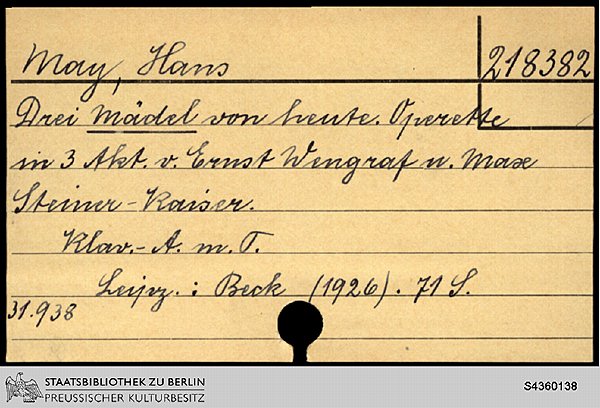 May, Hans
218382
Drei Mädel von heute. Operette
in 3 Akt. v. Ernst Wengraf u. Max
Steiner-Kaiser.
Klav.-A. m. T.
Leipz. : Beck (1926). 71 S.
31.938
STAATSBIBLIOTHEK ZU BERLIN
PREUSSISCHER KULTURBESITZ
S4360138